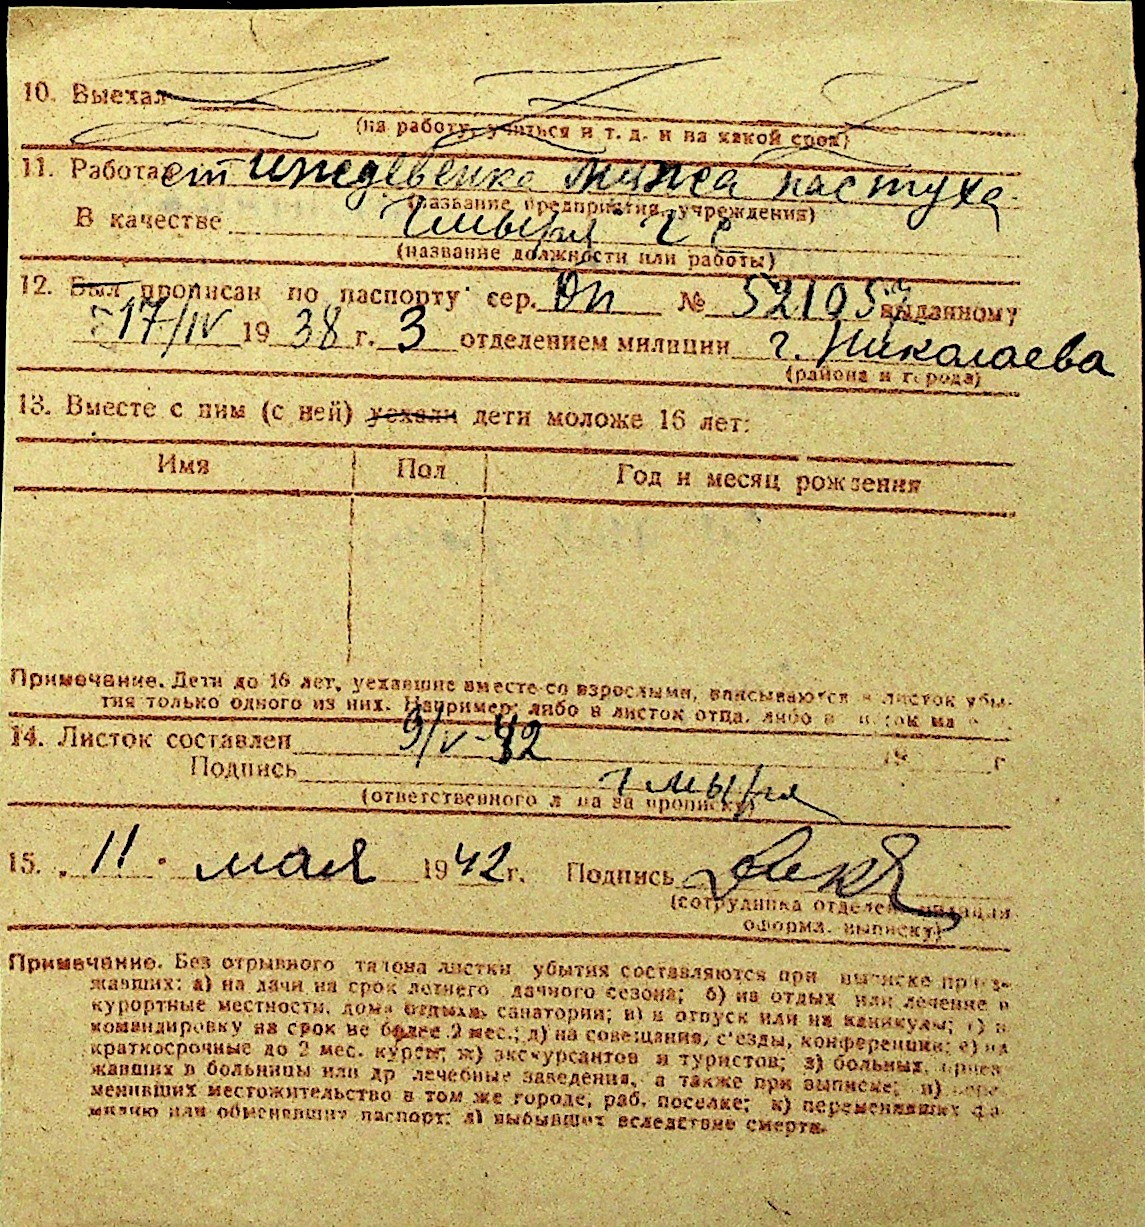 10. Выехал
(на работу, учиться и т. д. и на какой срок)
11. Работает иждевенка мужа пастуха
(название предприятия, учреждения)
В качестве Гмыря Г
(название должности или работы)
12. Был прописан по паспорту сер. ОП № 521057 выданному
17/IV 1938 г. 3 отделением милиции г. Николаева
(района и города)
13. Вместе с ним (с ней) уехали дети моложе 16 лет:
Имя Пол Год и месяц рождения
Примечание. Дети до 16 лет, уехавшие вместе со взрослыми, вписываются в листок убы-
тия только одного из них. Например: либо в листок отца, либо в листок ма
14. Листок составлен 9/V-42 19 г
Подпись Гмыря
(ответственного лица за прописку)
15. „11" мая 1942 г. Подпись
(сотрудника отделен. милиции
оформл. выписку)
Примечание. Без отрывного талона листки убытия составляются при выписке приез-
жавших: а) на дачи на срок летнего дачного сезона; б) на отдых или лечение в
курортные местности, дома отдыха, санатории; в) в отпуск или на каникулы; г) в
командировку на срок не более 2 мес.; д) на совещания, с'езды, конференции; е) на
краткосрочные до 2 мес. курсы; ж) экскурсантов и туристов; з) больных, приез-
жавших в больницы или др лечебные заведения, а также при выписке; и) пере-
менивших местожительство в том же городе, раб. поселке; к) переменивших фа-
милию или обменявших паспорт; л) выбывших вследствие смерти.